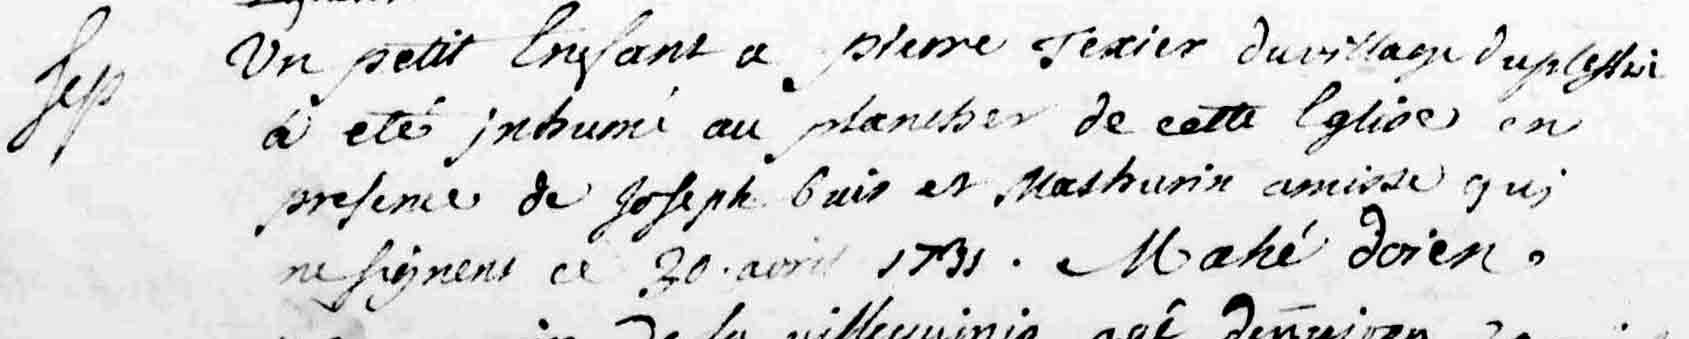 Sep
Un petit Enfant a pierre Texier du village duplessix
a eté inhumé au plancher de cette Eglise en
presence de Joseph et Mathurin qui
ne signent ce 20 avril 1731. Mahé doien.
de la agé denviron